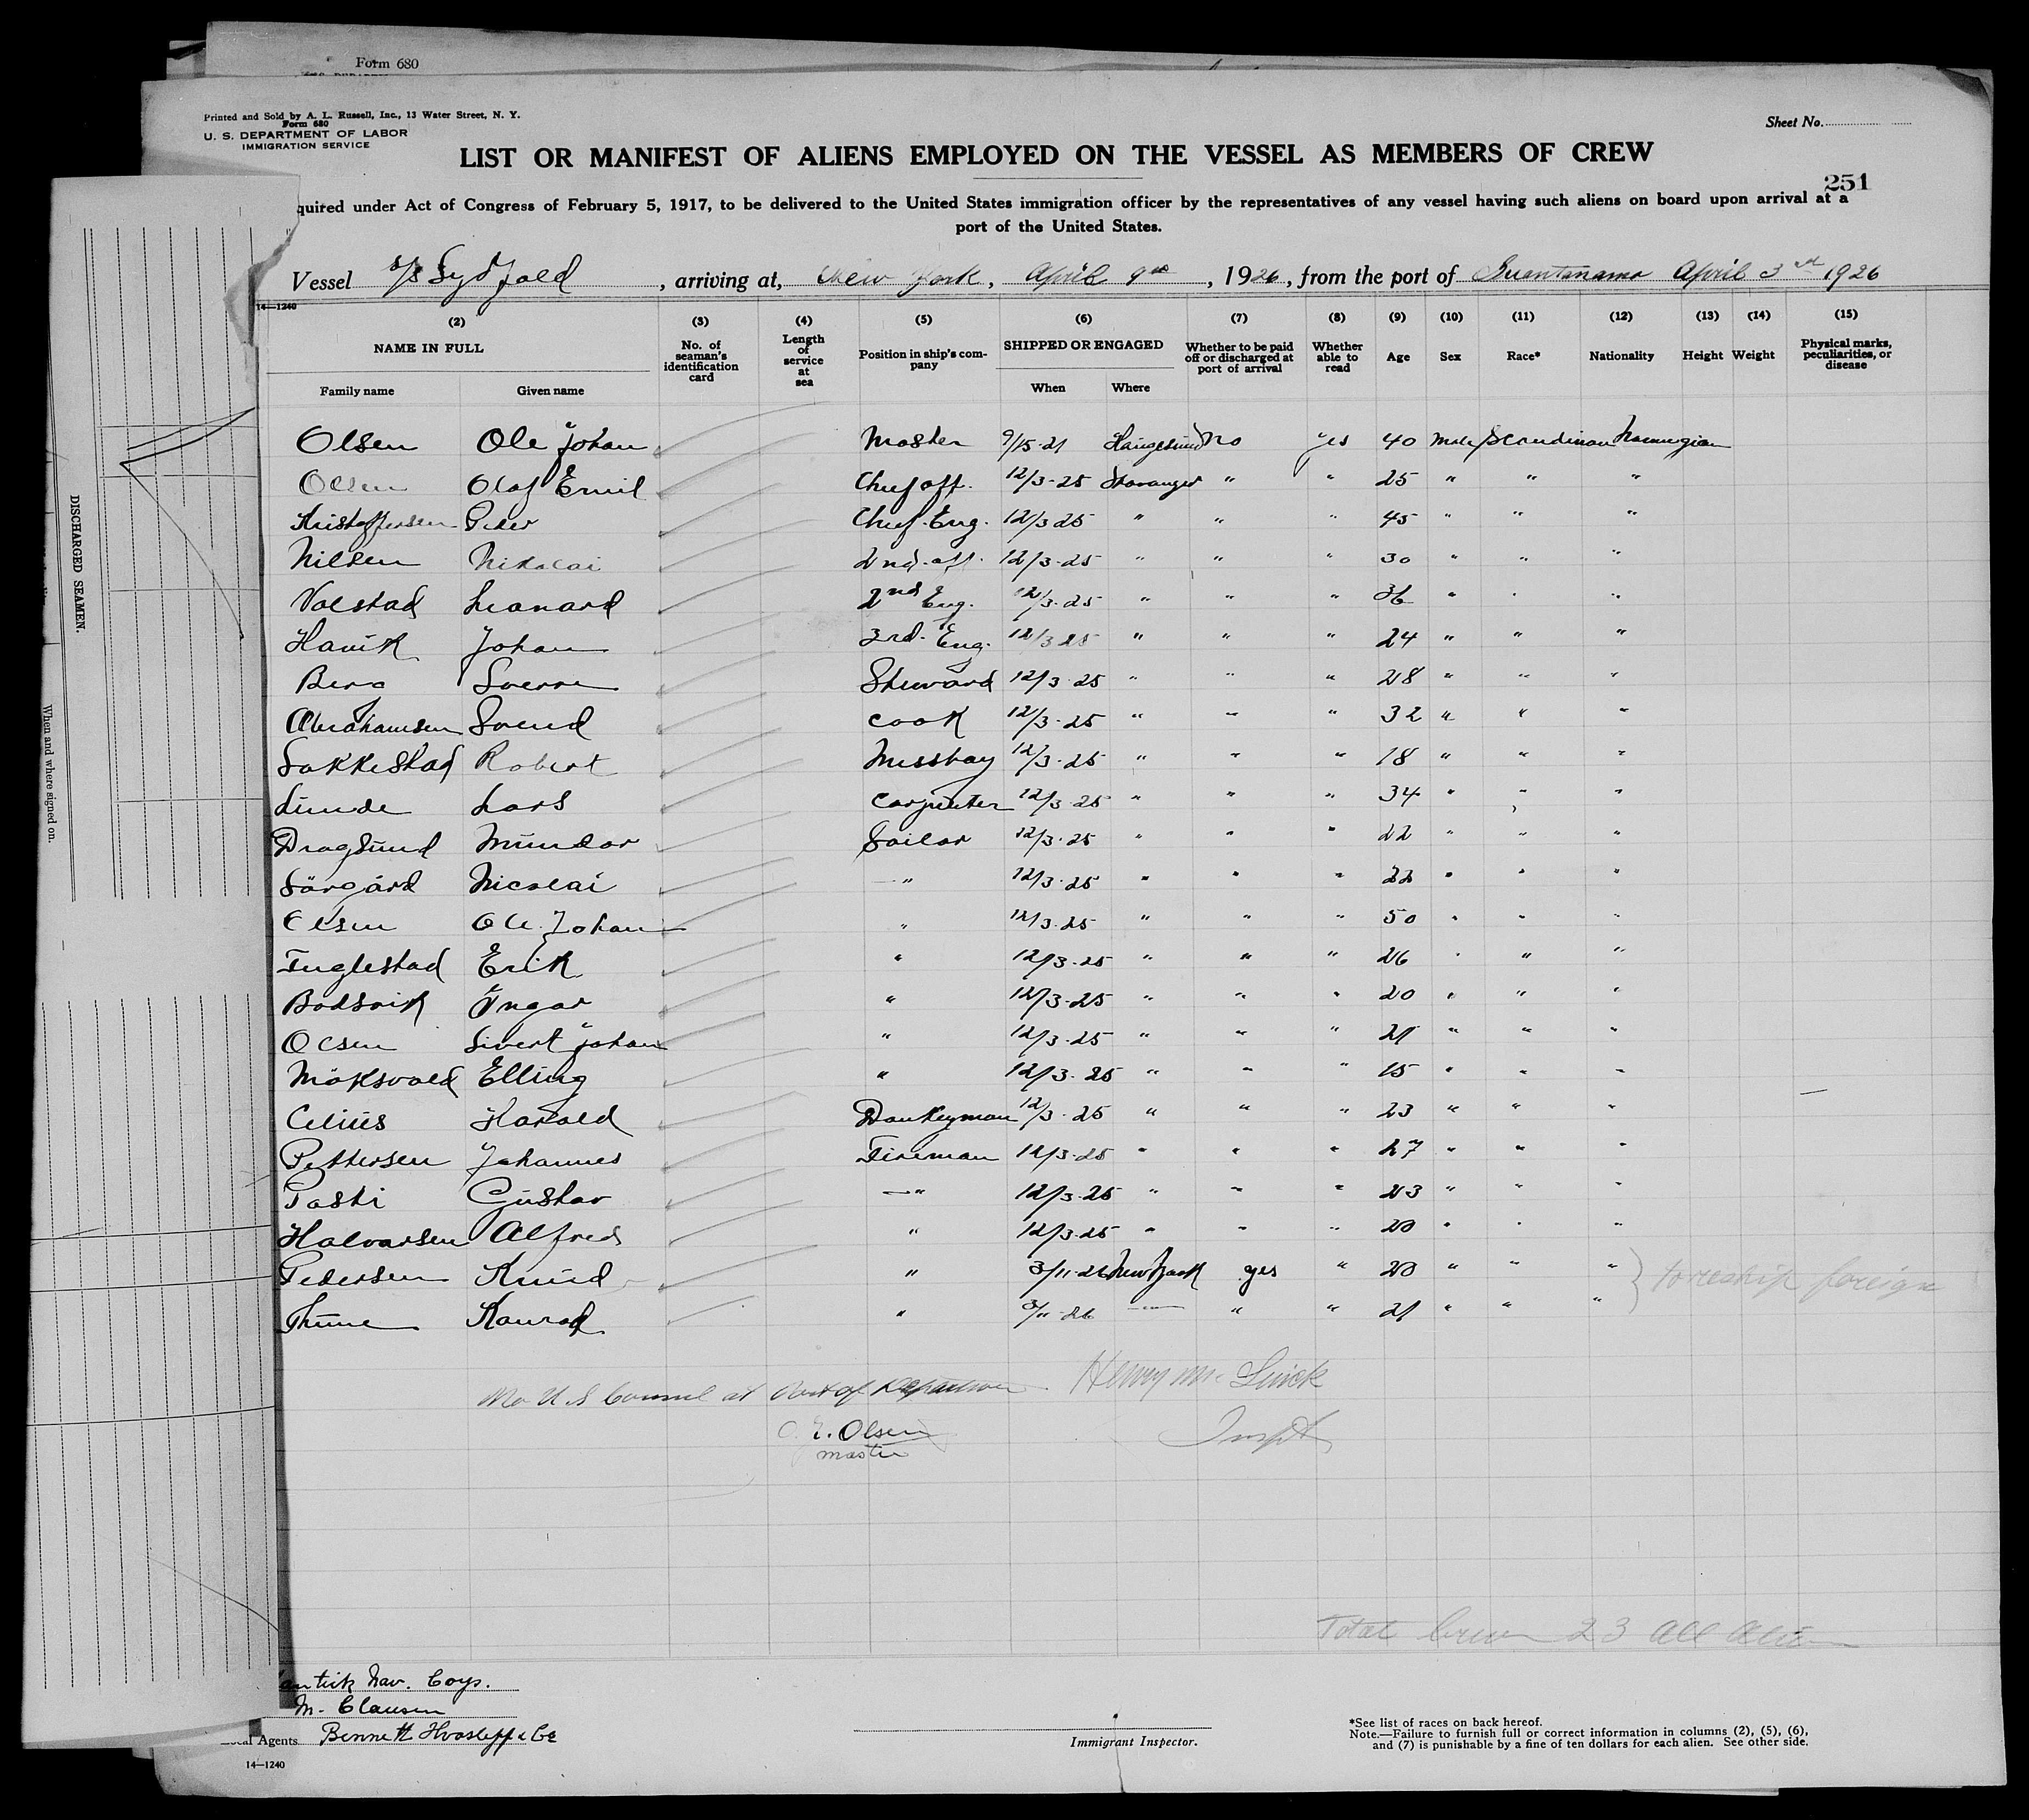 Form 680
Printed and Sold by A. L. Russell, Inc., 13 Water Street, N. Y.
Form 680
U. S. DEPARTMENT OF LABOR
IMMIGRATION SERVICE
Sheet No.
LIST OR MANIFEST OF ALIENS EMPLOYED ON THE VESSEL AS MEMBERS OF CREW
251
quired under Act of Congress of February 5, 1917, to be delivered to the United States immigration officer by the representatives of any vessel having such aliens on board upon arrival at a
port of the United States.
Vessel S/S Sydfold, arriving at, New York, April 9th, 1926, from the port of Guantanamo April 3rd 1926
14—1240
(2) (3) (4) (5) (6) (7) (8) (9) (10) (11) (12) (13) (14) (15)
NAME IN FULL No. of seaman's identification card Length of service at sea Position in ship's company SHIPPED OR ENGAGED Whether to be paid off or discharged at port of arrival Whether able to read Age Sex Race* Nationality Height Weight Physical marks, peculiarities, or disease
Family name Given name When Where
Olsen Ole Johan Master 9/15-21 Haugesund No yes 40 Male Scandinavian Norwegian
Olsen Olaf Emil Chief off. 12/3-25 Stavanger " " 25 " " "
Kristoffersen Peder Chief Eng. 12/3 25 " " " 45 " " "
Nilsen Nikolai 2nd off. 12/3-25 " " " 30 " " "
Volstad Leonard 2nd Eng. 12/3-25 " " " 36 " " "
Havik Johan 3rd Eng. 12/3 25 " " " 24 " " "
Berg Sverre Steward 12/3-25 " " " 28 " " "
Abrahamsen Svend Cook 12/3-25 " " " 32 " " "
Sakkestad Robert Messboy 12/3-25 " " " 18 " " "
Lunde Lars Carpenter 12/3-25 " " " 34 " " "
Dragsund Mundor Sailor 12/3-25 " " " 22 " " "
Sörgård Nicolai —" 12/3-25 " " " 22 " " "
Olsen Ole Johan " 12/3-25 " " " 50 " " "
Inglestad Erik " 12/3-25 " " " 26 " " "
Bodsvik Ingar " 12/3-25 " " " 20 " " "
Olsen Sivert Johan " 12/3-25 " " " 21 " " "
Möksvold Elling " 12/3-25 " " " 15 " " "
Celius Harald Donkeyman 12/3-25 " " " 23 " " "
Pettersen Johannes Fireman 12/3-25 " " " 27 " " "
Taski Gustav —" 12/3-25 " " " 23 " " "
Halvorsen Alfred " 12/3-25 " " " 20 " " "
Pedersen Knud " 3/11-26 New York yes " 20 " " " } to reship foreign
Thune Konrad " 3/11-26 — " " 21 " " "
No U S Consul at Port of Departure
Henry M.
O. E. Olsen
master
Inspt
Total Crew 23 All Alien
antick Nav. Corp.
M. Clausen
Local Agents Bennett Hvoslef & Co
14—1240
Immigrant Inspector.
*See list of races on back hereof.
Note.—Failure to furnish full or correct information in columns (2), (5), (6),
and (7) is punishable by a fine of ten dollars for each alien. See other side.
DISCHARGED SEAMEN.
When and where signed on.